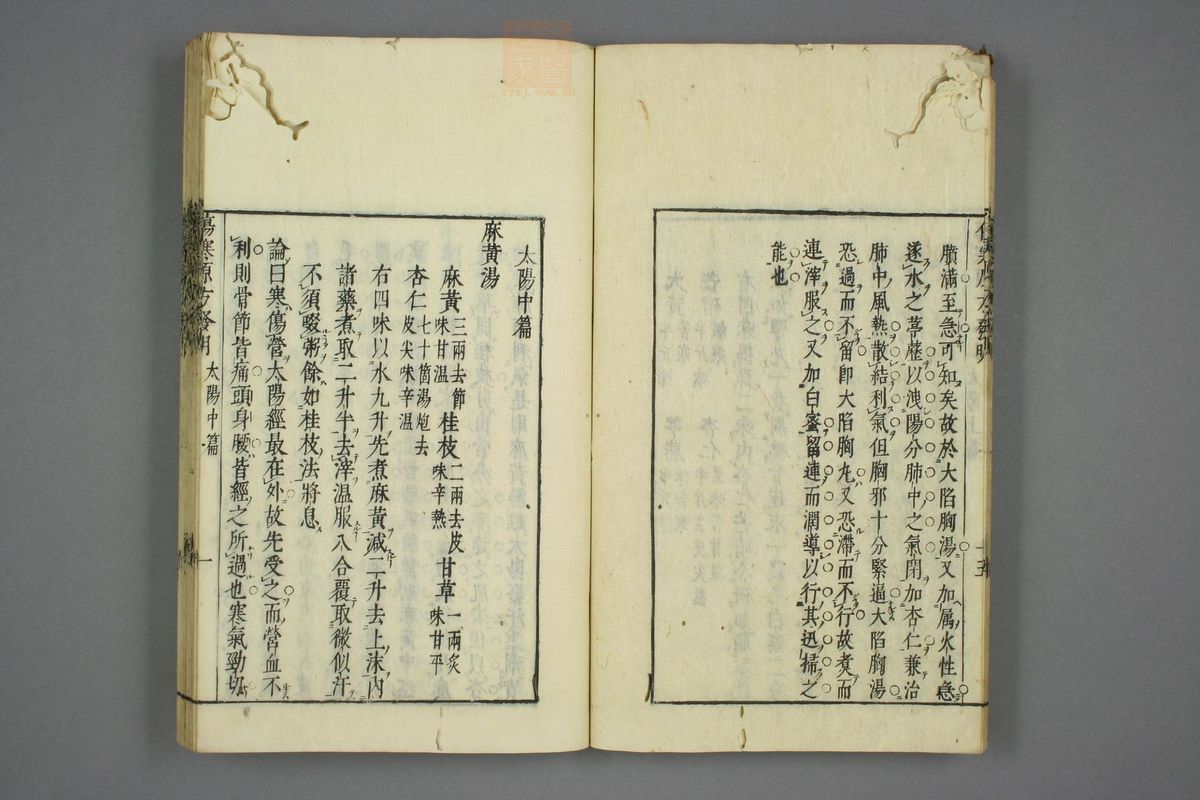 膹滿至急可知矣故於大陷胸湯又加属火性急
遂水之葶藶以洩陽分肺中之氣閉加杏仁兼治
肺中風熱散結利氣但胸邪十分緊逼大陷胸湯
恐過而不留卽大陷胸丸又恐滯而不行故煑而
連滓服之又加白蜜留連而潤導以行其迅掃之
能也
太陽中篇
麻黃湯
麻黃三兩去節味甘溫 桂枝二兩去皮味辛熱 甘草一兩炙味甘平
杏仁七十箇湯炮去皮尖味辛温
右四味以水九升先煮麻黃減二升去上沫內
諸藥煮取二升半去滓温服八合覆取微似汗
不須啜粥餘如桂枝法將息
論曰寒傷營太陽經最在外故先受之而營血不
利則骨節皆痛頭身腰皆經之所過也寒氣勁切
傷寒原方發明 太陽中篇 一